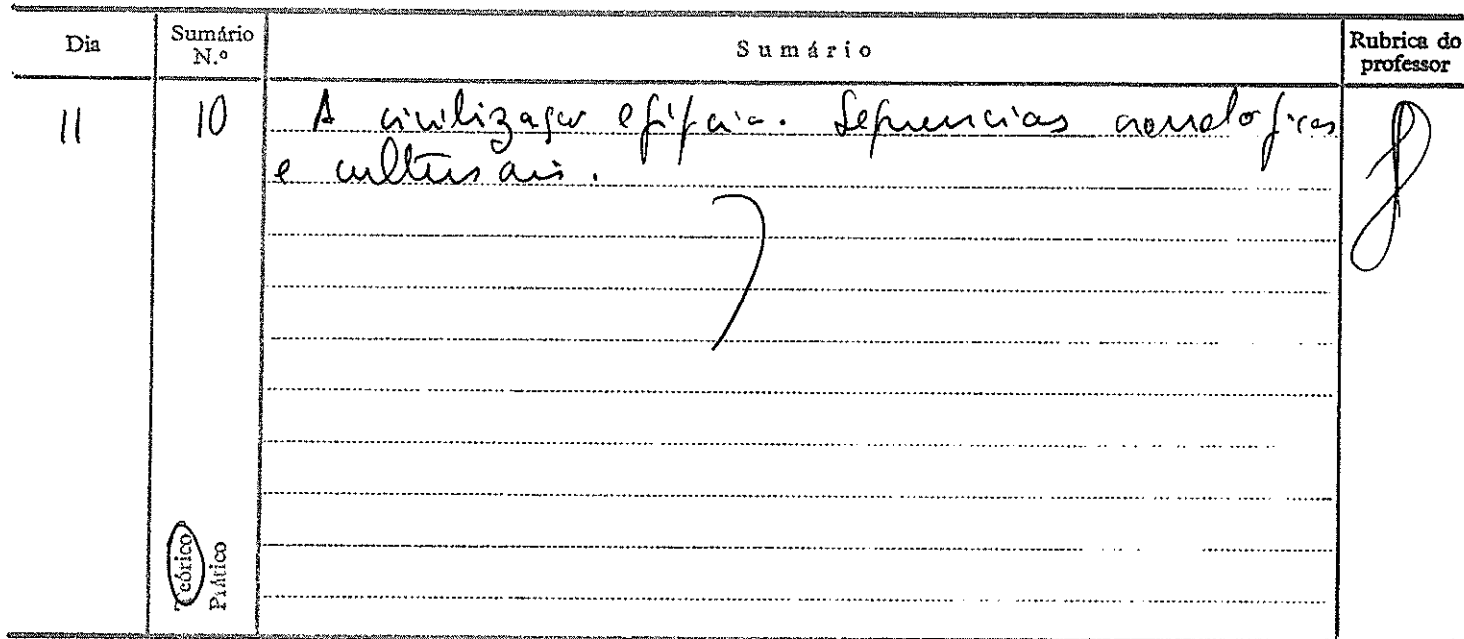 Dia
Sumário N.º
Sumário
Rubrica do professor
11
10
A civilização egípcia. Sequencias cronologicas
e culturais.
Teórico
Prático